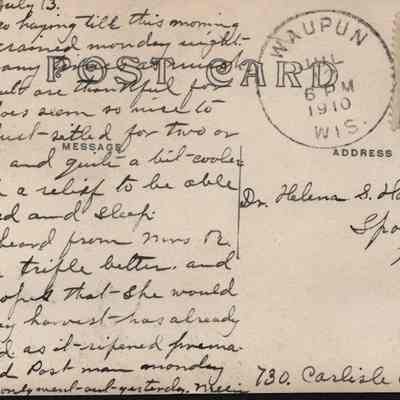 July 13.
haying till this morning
rained monday night.
any
POST CARD
are thankful for
does seem so nice to
settled for two or
MESSAGE
and quite a bit cooler
a relief to be able
and sleep.
heard from Mrs R.
triple better. and
hopes that she would
harvest has already
as it ripened prema-
Post man monday
only went out yesterday.
WAUPUN
JUL
6 PM
1910
WIS.
ADDRESS
Dr. Helena S.
Spo
730. Carlisle